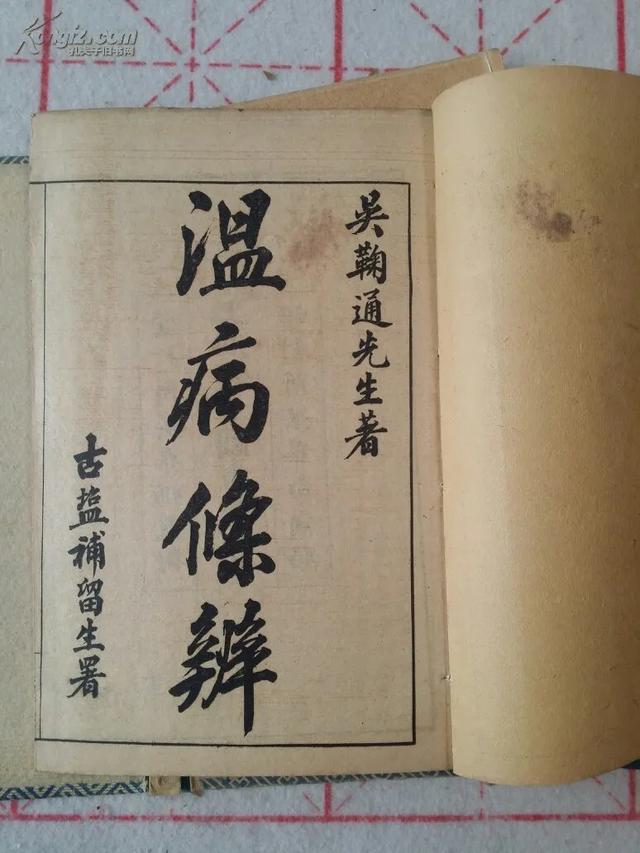 吳鞠通先生著
溫病條辨
古盐補留生署
Kongfz.com
孔夫子旧书网